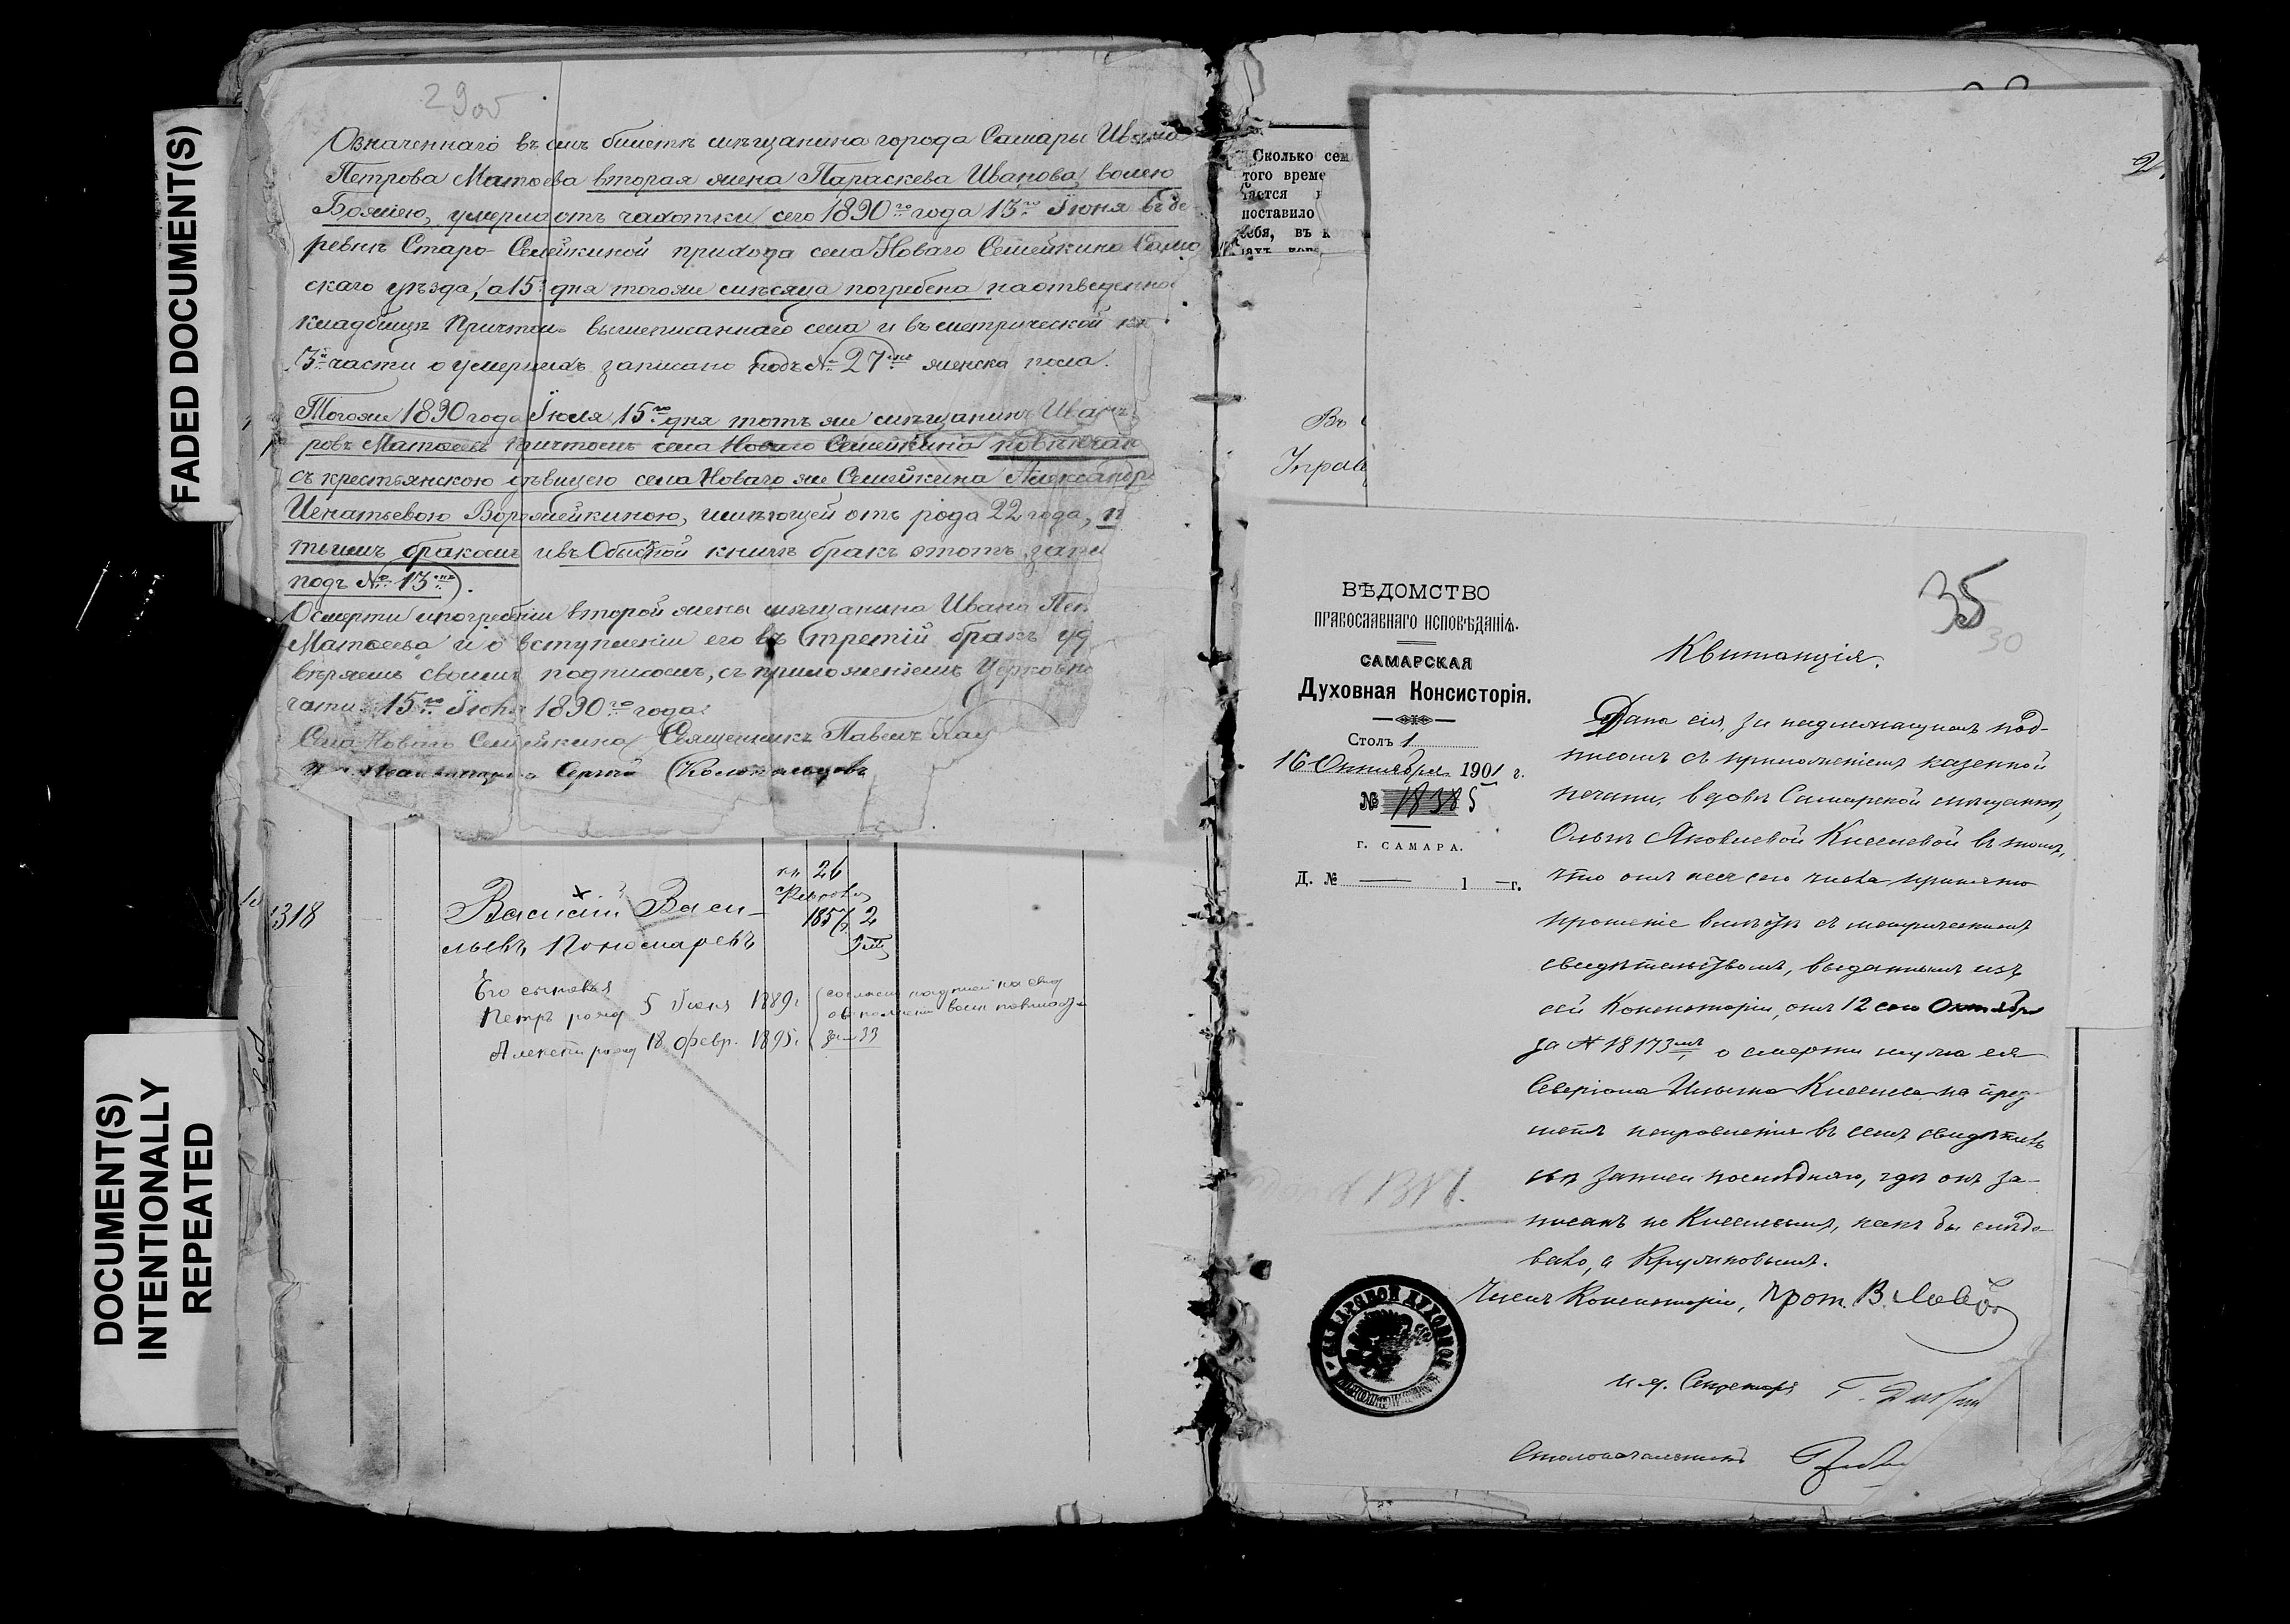 FADED DOCUMENT(S)
DOCUMENT(S)
INTENTIONALLY
REPEATED
29об
Означеннаго въ семъ билетѣ мѣщанина города Самары Ивана
Петрова Матоева вторая жена Параскева Иванова, волею
Божіею, умерла отъ чахотки сего 1890го года 13го Іюня въ де-
ревнѣ Старо-Семейкиной прихода села Новаго Семейкина Сама
скаго уѣзда, а 15 дня того же мѣсяца погребена на отведенно
кладбищѣ Причтомъ вышеписаннаго села и въ метрической кн
3й части о умершихъ записано подъ № 27мъ женска пола.
Того же 1890 года Іюля 15го дня тотъ же мѣщанинъ Иван
ровъ Матоевъ причтомъ села Новаго Семейкина повѣнчан
съ крестьянскою дѣвицею села Новаго же Семейкина Александр
Игнатьевою Ворожейкиною, имѣющей отъ рода 22 года,
тьимъ бракомъ и въ Обыскной книгѣ бракъ этотъ запи
подъ № 13мъ.
О смерти и погребеніи второй жены мѣщанина Ивана Пет
Матоева и о вступленіи его въ третій бракъ уд
вѣряемъ своимъ подписомъ, съ приложеніемъ Церковно
чати. 15го 1890го года.
Села Новаго Семейкина Священникъ Павелъ
Псаломщикъ Сергій Колокольцовъ
1318
Василій Васи-
льевъ Пономаревъ
26
Февраля
1857 2
Его сыновья
Петръ рожд 5 Іюня 1889г.
Алексѣй рожд 18 февр. 1895г.
Сколько сем
того време
поставило
себя, въ
Въ
Управ
35
30
ВѢДОМСТВО
ПРАВОСЛАВНАГО ИСПОВѢДАНІЯ.
САМАРСКАЯ
Духовная Консисторія.
Столъ 1
16 Октября 1901 г.
№ 18385
г. САМАРА.
Д. № — 1 — г.
Квитанція.
Дана сія, за надлежащимъ под-
писомъ съ приложеніемъ казенной
печати, вдовѣ Самарской мѣщанкѣ,
Ольгѣ Яковлевой Киселевой въ томъ,
что отъ нея сего числа принято
прошеніе вмѣстѣ съ метрическимъ
свидѣтельствомъ, выданнымъ изъ
сей Консисторіи, отъ 12 сего Октября
за № 18173мъ о смерти мужа ея
Северіана Ильина Киселева на пред-
метъ исправленія въ семъ свидѣтель
ствѣ записи послѣдняго, гдѣ онъ за-
писанъ не Киселевымъ, какъ бы слѣдо-
вало, а Кругликовымъ.
Членъ Консисторіи, Прот. В.
и. д. Секретаря
Столоначальникъ